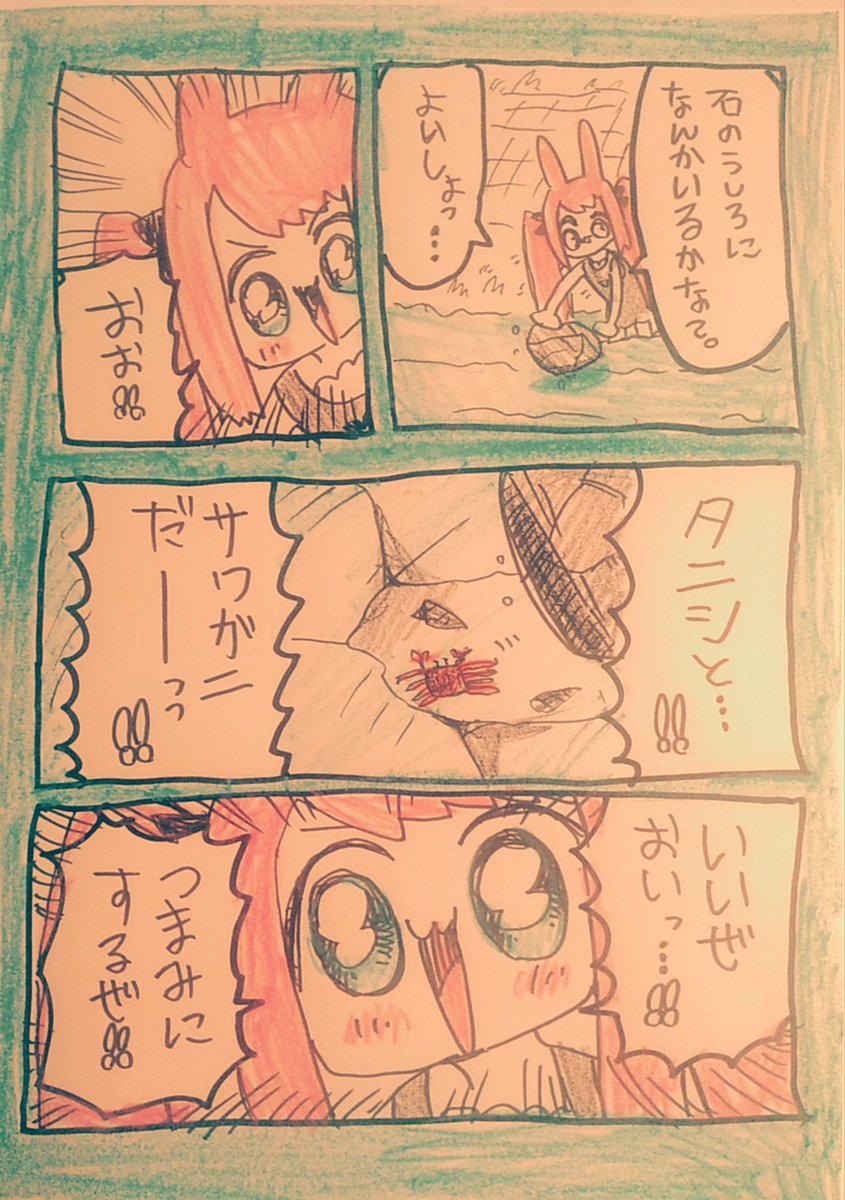 石のうしろに
なんかいるかなて。
よいしょっ…
おお!!
タニシと…!!
サワガニ
だーーっっ!!
いいぜ
おいっ…!!
つまみに
するぜ!!